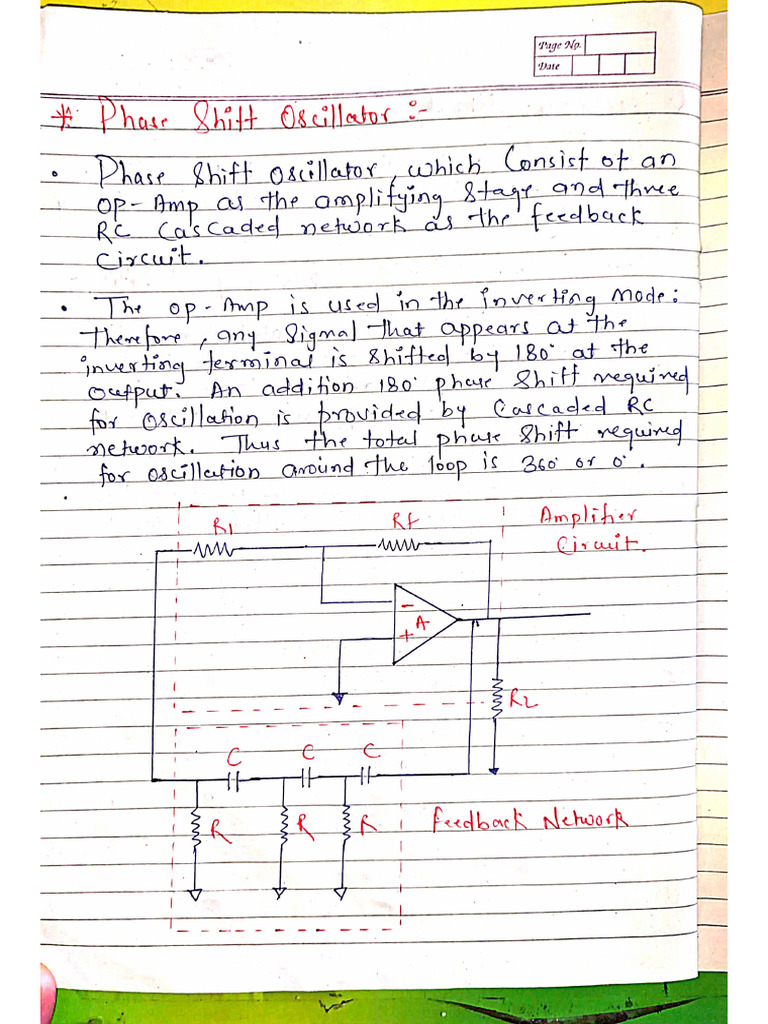 Page No.
Date
* Phase Shift Oscillator :-
• Phase Shift Oscillator, which Consist of an
OP-Amp as the amplifying Stage and three
RC Cascaded network as the feedback
Circuit.
• The op-Amp is used in the inverting Mode:
therefore, any Signal that appears at the
inverting terminal is Shifted by 180° at the
output. An addition 180° phase Shift required
for oscillation is provided by Cascaded RC
network. Thus the total phase Shift required
for oscillation around the loop is 360° or 0°.
R1
Rf
Amplifier
Circuit.
-
A
+
R2
C
C
C
R
R
R
feedback Network